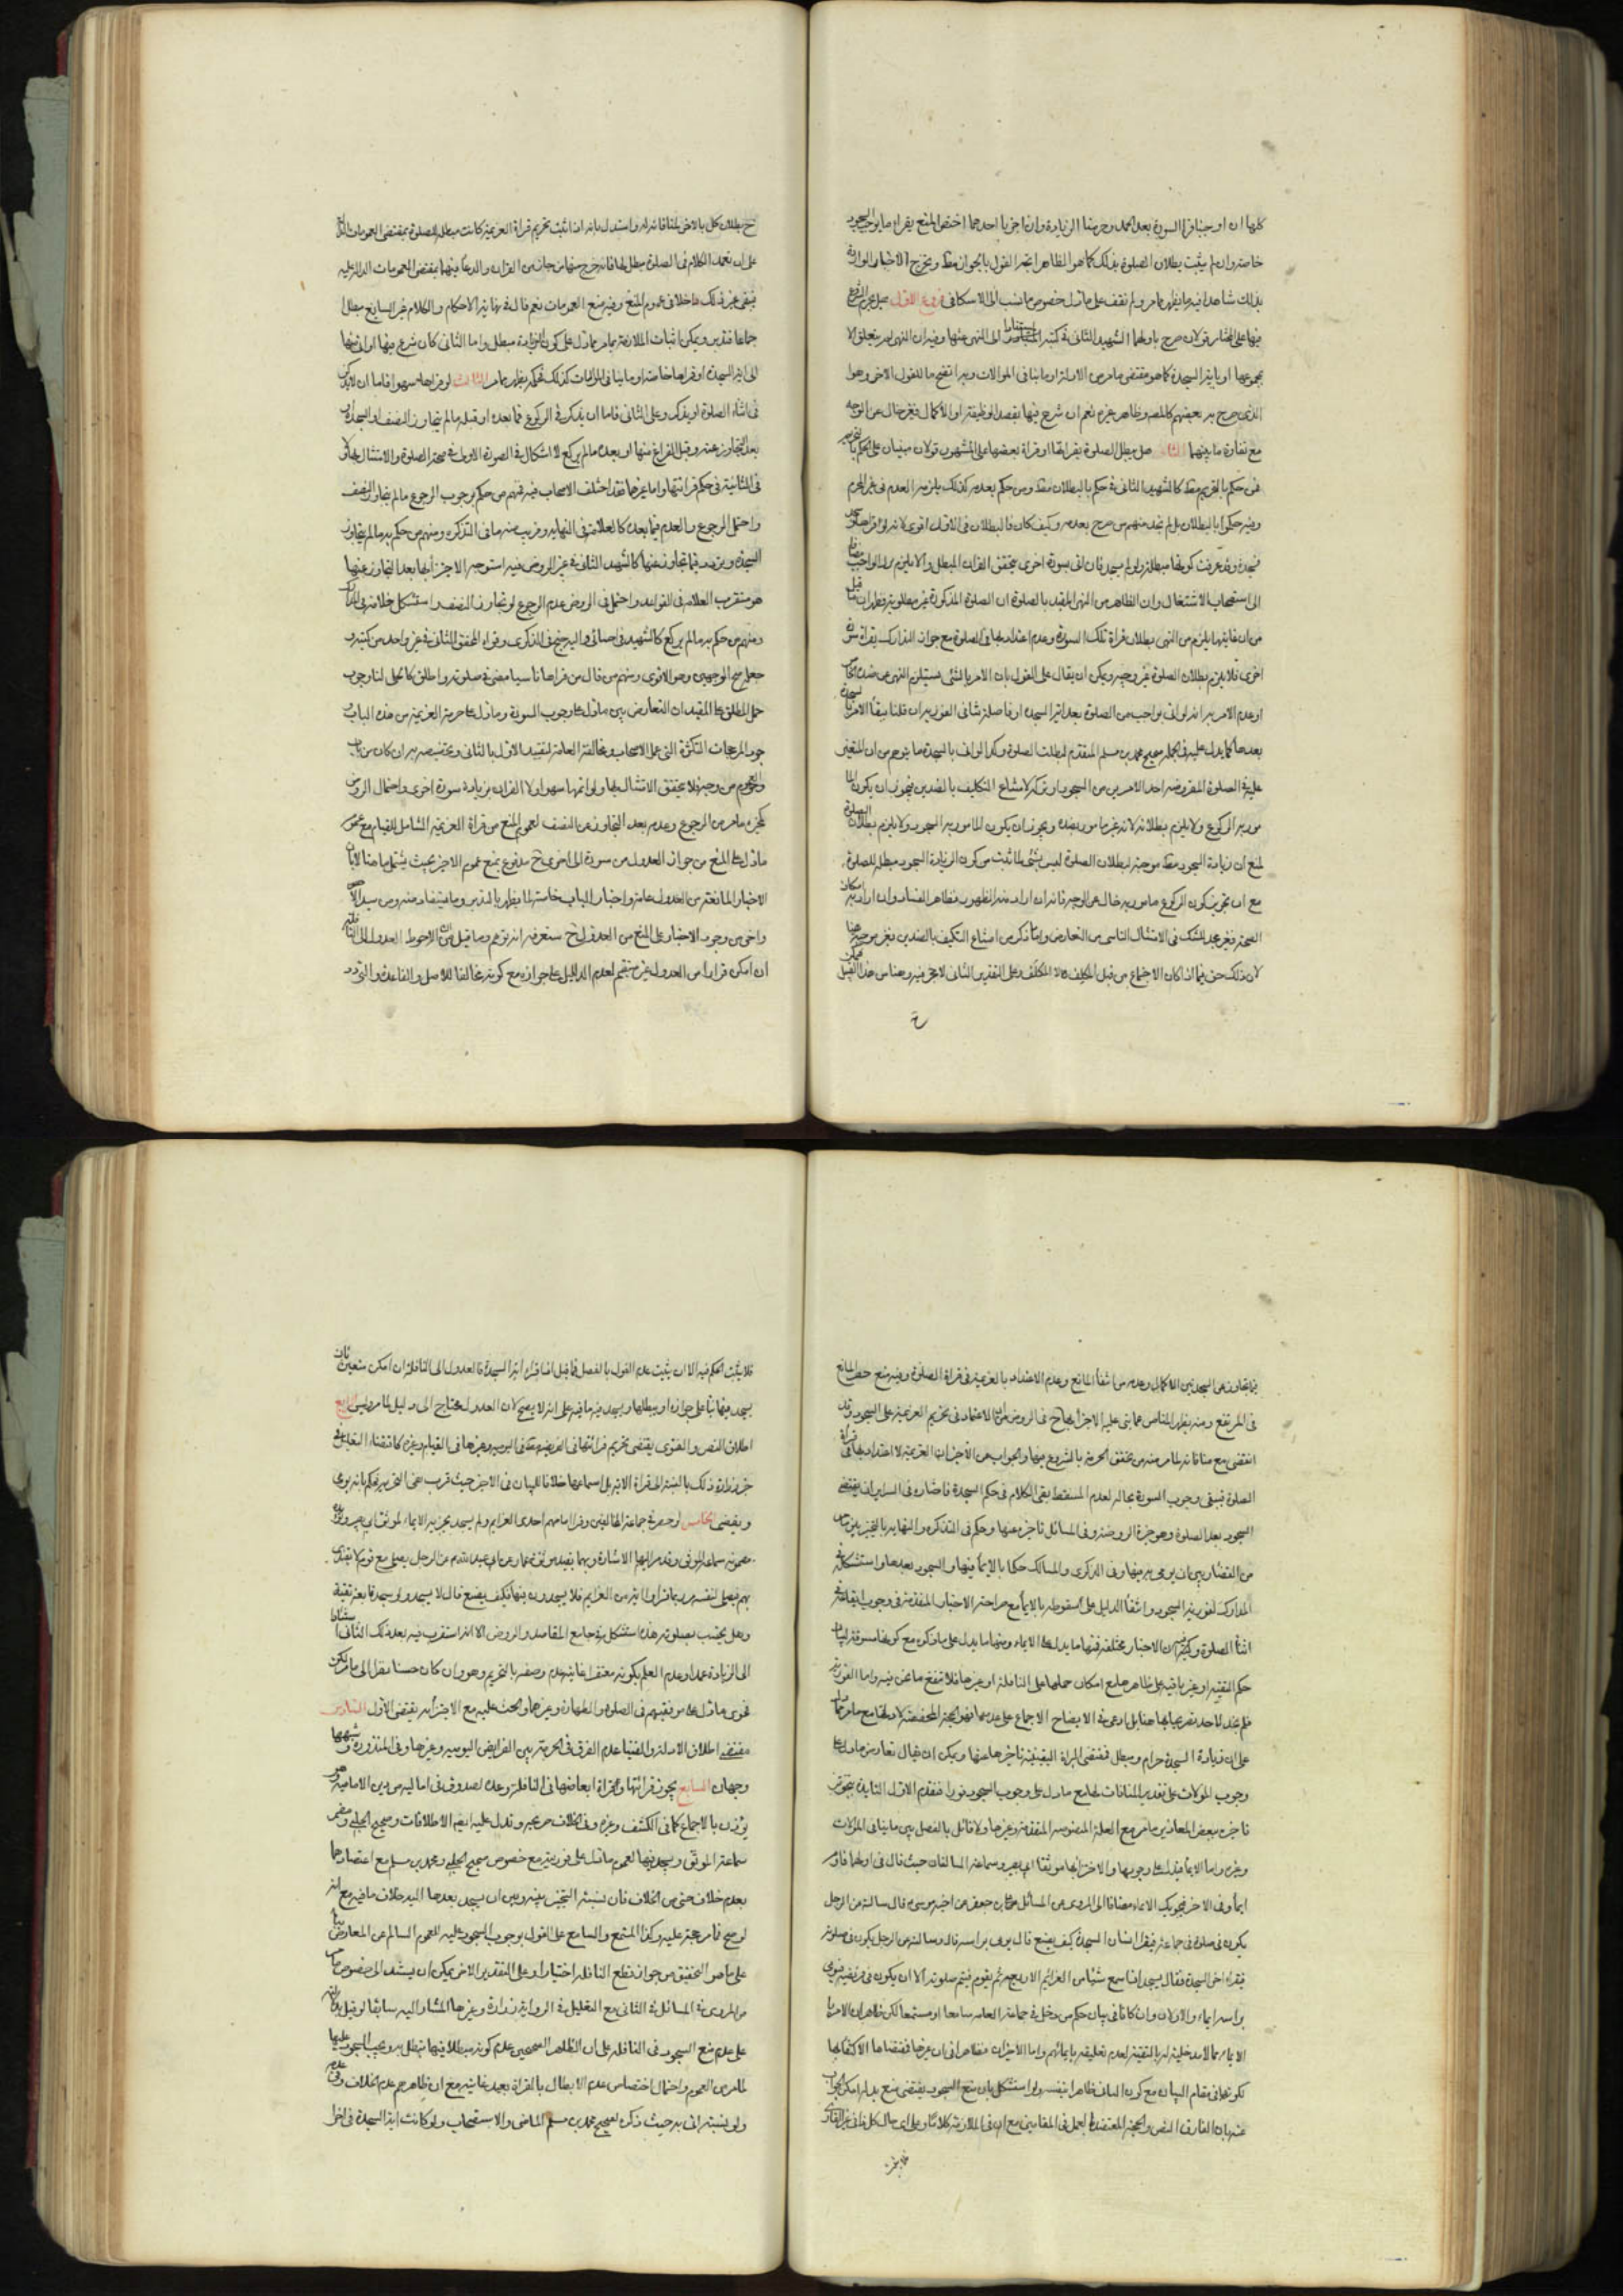 كلها ان اوجبنا قراءة السورة بعد الحمد وحرمنا الزيادة وان اجزنا احدهما اختص المنع بقراءة ما يوجب السجود
خاصة وان لم يثبت بطلان الصلوة بذلك كما هو الظاهر اتجه القول بالجواز مطلقا وتخرج الاخبار الواردة
بذلك شاهدا فيه ما يظهر مما مر ولم نقف على ما دل خصوص ما نسب الى الاسكافى فروع الاول هل يحرم الشروع
فيها على المختار قولان صرح باولهما الشهيد الثانى فى كتبه استنادا الى النهى عنها وفيه ان النهى لم يتعلق الا
بمجموعها او باية السجدة كما هو مقتضى ما مر من الادلة او ما ينافى الموالات وبه اتضح ما للقول الاخر وهو
الذى صرح به بعضهم كالمص وظاهر غيره نعم ان شرع فيها بقصد الوظيفة او الاكمال فغير خال عن الوجه
مع تفاوت ما بينهما الثانى هل يبطل الصلوة بقرائتها او قراءة بعضها على المشهور قولان مبنيان على الحكم بالتحريم
فمن حكم بالتحريم مطلقا كالشهيد الثانى حكم بالبطلان مطلقا ومن حكم بعدمه كذلك يلزمه العدم فى غير المحرم
وفيه حكموا بالبطلان بل لم نجد منهم من صرح بعدمه وكيف كان فالبطلان فى الاول اقوى لانه لو قراها وسجد
فسجدة وقد عرفت كونها مبطلة ولو لم يسجد فان اتى بسورة اخرى تحقق القران المبطل والا يلزم ترك الواجب
الى استصحاب الاشتغال وان الظاهر من النهى المقيد بالصلوة ان الصلوة المذكورة غير مطلوبة فظهر ان ما قيل
من ان غايتها يلزم من النهى بطلان قراءة تلك السورة وعدم اعتداد بها فى الصلوة مع جواز التدارك بقراءة سورة
اخرى فلا يلزم بطلان الصلوة غير وجيه ويمكن ان يقال على القول بان الامر بالشئ يستلزم النهى عن ضده الخاص
او عدم الامر به انه لو اتى بواجب من الصلوة بعد اية السجدة
بعدها كما يدل عليه فى الجملة صحيح محمد بن مسلم المتقدم لبطلت الصلوة وكذا لو اتى بالسجدة ما يتوهم من ان المتعين
عليه فى الصلوة المفروضة احد الامرين من السجود او تركه لامتناع التكليف بالضدين فيجوز ان يكون
مورد الركوع ولا يلزم بطلانه لانه غير مامور بضده ويجوز ان يكون المامور به السجود ولا يلزم بطلان الصلوة
لمنع ان زيادة السجود مطلقا موجبة لبطلان الصلوة ليس بشئ لما ثبت من كون الزيادة السجود مبطل للصلوة
مع ان تجويز كون الركوع مامور به خال عن الوجه فانه ان اراد منه الظهور فظاهر الفساد وان اراد به امكان
الصحة فغير مجد للشك فى الامتثال الناشى من التعارض واما ما ذكر من امتناع التكليف بالضدين فغير موجه هنا
لان ذلك حق فيما اذا كان الاجتماع من قبل المكلِف لا المكلَف وعلى التقدير الثانى لا تحرير فيه وهنا من هذا القبيل
ح بطلان كل بالاخر لمنافاته له واستدل بانه اذا ثبت تحريم قراءة العزيمة كانت مبطلة للصلوة بمقتضى العمومات الدالة
على ان تعمد الكلام فى الصلوة مبطل لها فانه خرج منها من جانبين القران والدعاء بينهما بمقتضى العمومات الدالة عليه
فبقى غير ذلك داخلا فى عموم المنع وفيه منع العمومات نعم قال فى نهاية الاحكام والكلام غير السايغ مبطل
جماعا فتدبر ويمكن اثبات الملازمة بما مر مما دل على كون الزيادة مبطل واما الثانى كان شرع فيها او اتى بها
الى اية السجدة او قراها خاصة او ما ينافى الموالات كذلك فحكمه يظهر مما مر الثالث لو قراها سهوا فاما ان لا يذكر
فى اثناء الصلوة او يذكر وعلى الثانى فاما ان يذكر فى الركوع فما بعده او قبله ما لم يتجاوز النصف او السجدة او
بعد التجاوز عنه وقبل الفراغ منها او بعده ما لم يركع لا اشكال فى الصورة الاولى فى صحة الصلوة والامتثال بها و
فى الثانية فى حكم قرائتها واما غيرها فقد اختلف الاصحاب فيه فمنهم من حكم بوجوب الرجوع ما لم يتجاوز النصف
واحتمل الرجوع والعدم فيما بعده كالعلامة فى النهاية وقريب منه ما فى التذكرة ومنهم من حكم به ما لم يتجاوز
السجدة وتردد فيما تجاوز عنها كالشهيد الثانى فى غير الروض وفيه استوجه الاجزاء بها بعد التجاوز عنها
هو مستقرب العلامة فى القواعد واحتمل فى الروض عدم الرجوع لو تجاوز النصف واستشكل خلافه فى البيان
ومنهم من حكم به ما لم يركع كالشهيد فى احتمال والترجيح فى الذكرى وقواه المحقق الثانى فى غير واحد من كتبه و
جعله اصح الوجهين وهو الاقوى ومنهم من قال من قراها ناسيا مضى فى صلوته واطلق كالحلى لنا وجوب
حمل المطلق على المقيد ان التعارض بين ما دل على وجوب السورة وما دل على حرمة العزيمة من هذه الباب و
وجود المرجحات المتكثرة التى عمل الاصحاب ومخالفة العامة لتقييد الاول بالثانى وتخصيصه به ان كان من باب
والعموم من وجه فلا يتحقق الامتثال بها ولو اتمها سهوا ولا القران بزيادة سورة اخرى واحتمال الروض
كخيرة ما مر من الرجوع وعدمه بعد التجاوز من النصف لعموم المنع من قراءة العزيمة الشامل للقيام مع عموم
ما دل على المنع من جواز العدول من سورة الى اخرى ح مدفوع بمنع عموم الاخير بحيث يشمل ما هنا لان
الاخبار المانعة من العدول عامة واخبار الباب خاصة لما يظهر بالتدبر وما يستفاد منه
واخرى من وجود الاخبار على المنع من العدول ح ستعرفه انه توهم وما قيل من ان الاحوط العدول الى النافلة
ان امكن فرارا من العدول غير مستقيم لعدم الدليل على جوازه مع كونه مخالفا للاصل والقاعدة والتردد
فيما تجاوز عن السجدة بين الاكمال وعدمه من انتفاء المانع وعدم الاعتداد بالعزيمة فى قراءة الصلوة وفيه منع حصر المانع
فى المرتفع ومنه يظهر المناص عما بنى عليه الاجزاء بها ح فى الروض من ان الاعتماد فى تحريم العزيمة على السجود وقد
انقضى مع منافاته لما مر منه من تحقق الحرمة بالشروع فيها والجواب عن الاخير ان العزيمة لا اعتداد بها فى قراءة
الصلوة فبقى وجوب السورة بحاله لعدم المسقط بقى الكلام فى حكم السجدة فاختار فى السرائر ان يقضى
السجود بعد الصلوة وهو خيرة الروضة وفى المسائل تاخره عنها وحكم فى التذكرة والنهاية بالتخيير بين
من القضاء وبين ان يومى به فيها وفى الذكرى والمسالك حكما بالايماء فيها والسجود بعدها واستشكله فى
المدارك لفورية السجود وانتفاء الدليل على سقوطه بالايماء مع صراحة الاخبار المتقدمة فى وجوب ايقاعه فى
اثناء الصلوة وفيه ان الاخبار مختلفة فمنها ما يدل على الايماء ومنها ما يدل على ما ذكره مع كونها مسوقة لبيان
حكم التقية او غير باقية على ظاهرها مع امكان حملها على النافلة او غيرها فلا تنفع ما نحن فيه واما الفورية
فلم نجد لاحد تصريحا بها هنا بل ادعى فى الايضاح الاجماع على عدمها فهو الحجة المخصصة لادلتها مع ما مر مما دل
على ان زيادة السجدة حرام ومبطل فمقتضى البراءة اليقينية تاخرها عنها ويمكن ان يقال تعارض ما دل على
وجوب الموالات على تقدير المنافات لها مع ما دل على وجوب السجود فورا فتقدم الاول لتاييده بتجويز
تاخيره بعض المعاصرين ما مر مع العلة المنصوصة المتقدمة وغيرها ولا قائل بالفصل بين ما ينافى الموالات
وغيره واما الايماء فيدل على وجوبها والاجتزاء بها موثقا ابى بصير وسماعة السالفان حيث قال فى اولهما فاوم
ايماء وفى الاخر فيجزيك الايماء مضافا الى المروى عن المسائل على بن جعفر عن اخيه موسى ع قال سالته من الرجل
يكون فى صلوة فى جماعة فيقرا انسان السجدة كيف يصنع قال يومى براسه قال وسالته عن الرجل يكون فى صلوته
فيقراء اخر السجدة فقال يسجد اذا سمع شيئا من العزائم الاربع ثم يقوم فيتم صلوته الا ان يكون فى فريضة فيومى
براسه ايماء والاولان وان كانا فى بيان حكم من دخل فى جماعة العامة سامعا او مستمعا لكن ظاهر ان الامر با
الايماء مما لا مدخلية له بالتقية لعدم تعليقه بايمائهم واما الاخيران فظاهرا فى ان غيرها فمقتضاها الاكتفاء بها
لكونها فى مقام البيان مع كون المنافى ظاهرا بنفسه ولو استشكل بان منع السجود يقتضى منع بدله امكن الجواب
عنه بان الفارق النص والحجة المعتضدة بعمل فى المقامين مع ان فى الملازمة كلاما وعلى اى حال كل ذلك فى غير القارى
فلا يثبت الحكم فيه الا ان يثبت عدم القول بالفصل فما قيل اذا قراء اية السجدة فالعدول الى النافلة ان امكن متعين
يسجد فيها بناء على جوازه او يبطلها ويسجد فيه ما فيه على انه لا يصح لان العدول محتاج الى دليل لما مر وليس الرابع
اطلاق النص والفتوى يقتضى تحريم قرائتها فى الفريضة مطلقا فى اليومية وغيرها فى القيام وغيره كما اقتضاه التعليل فى
خبر زرارة وذلك بالنسبة الى قراءة الاية بل استماعها خلافا للبيان فى الاخير حيث قرب نفى التحريم فحكم بانه يومى
ويقضى الخامس لو حضر فى جماعة المخالفين وقرا امامهم احدى العزايم ولم يسجد يجزيه الايماء لموثق ابى بصير وكذا
مضمرة سماعة الموثق وقد مر اليهما الاشارة وبهما يقيد موثق عمار عن ابى عبدالله ع عن الرجل يصلى مع قوم لا يقتدى
بهم فيصلى لنفسه وربما قراوا اية من العزايم فلا يسجدون فيها فكيف يصنع قال لا يسجد ولو سجد تابعه تقية
وهل يحتسب بصلوته هذه استشكل فيه جامع المقاصد والروض الا انه استقرب فيه بعد ذلك الثانى استنادا
الى الزيادة عمدا وعدم العلم بكونه مغتفرا غايته عدم وصفه بالتحريم وهو وان كان حسنا نظرا الى ما مر لكن
فحوى ما دل على موافقتهم فى الصلوة والطهارة وغيرها والحث عليه مع الاجتزاء به يقتضى الاول السادس
مقتضى اطلاق الادلة والفتيا عدم الفرق فى الحرمة بين الفرايض اليومية وغيرها وفى المنذورة وشبهها
وجهان السابع يجوز قرائتها وقراءة ابعاضها فى النافلة وعده الصدوق فى اماليه من دين الامامية وهو
يؤذن بالاجماع كما فى الكشف وغيره وفى الخلاف صريحه وتدل عليه ايضا الاطلاقات وصحيح الحلبى ومضمر
سماعة الموثق ويسجد فيها لعموم ما دل على فوريته مع خصوص صحيح الحلبى ومحمد بن مسلم مع اعتضادهما
بعدم خلاف حتى من الخلاف فان نسبة التخيير بينه وبين ان يسجد بعدها اليه خلاف ما فيه مع انه
لو صح فلا حجة عليه وكذا المستمع والسامع على القول بوجوب السجود عليه للعموم السالم عن المعارض بناء
على ما هو التحقيق من جواز قطع النافلة اختيارا وعلى التقدير الاخر يمكن ان يستند الى خصوص
المروى فى المسائل فى الثانى مع التعليل فى الرواية زرارة وغيرها المشار اليه سابقا
على عدم منع السجود فى النافلة على ان الظاهر الصحيحين عدم كونه مبطلا فيها فيبطل به ويجب السجود عليها
لما مر من العموم واحتمال اختصاص عدم الابطال بالقراءة بعيد غايته مع ان ظاهرهم عدم الخلاف وفى عدمه
ولو نسبته اتى به حيث ذكره لصحيح محمد بن مسلم الماضى والاستصحاب ولو كانت اية السجدة فى اخرا